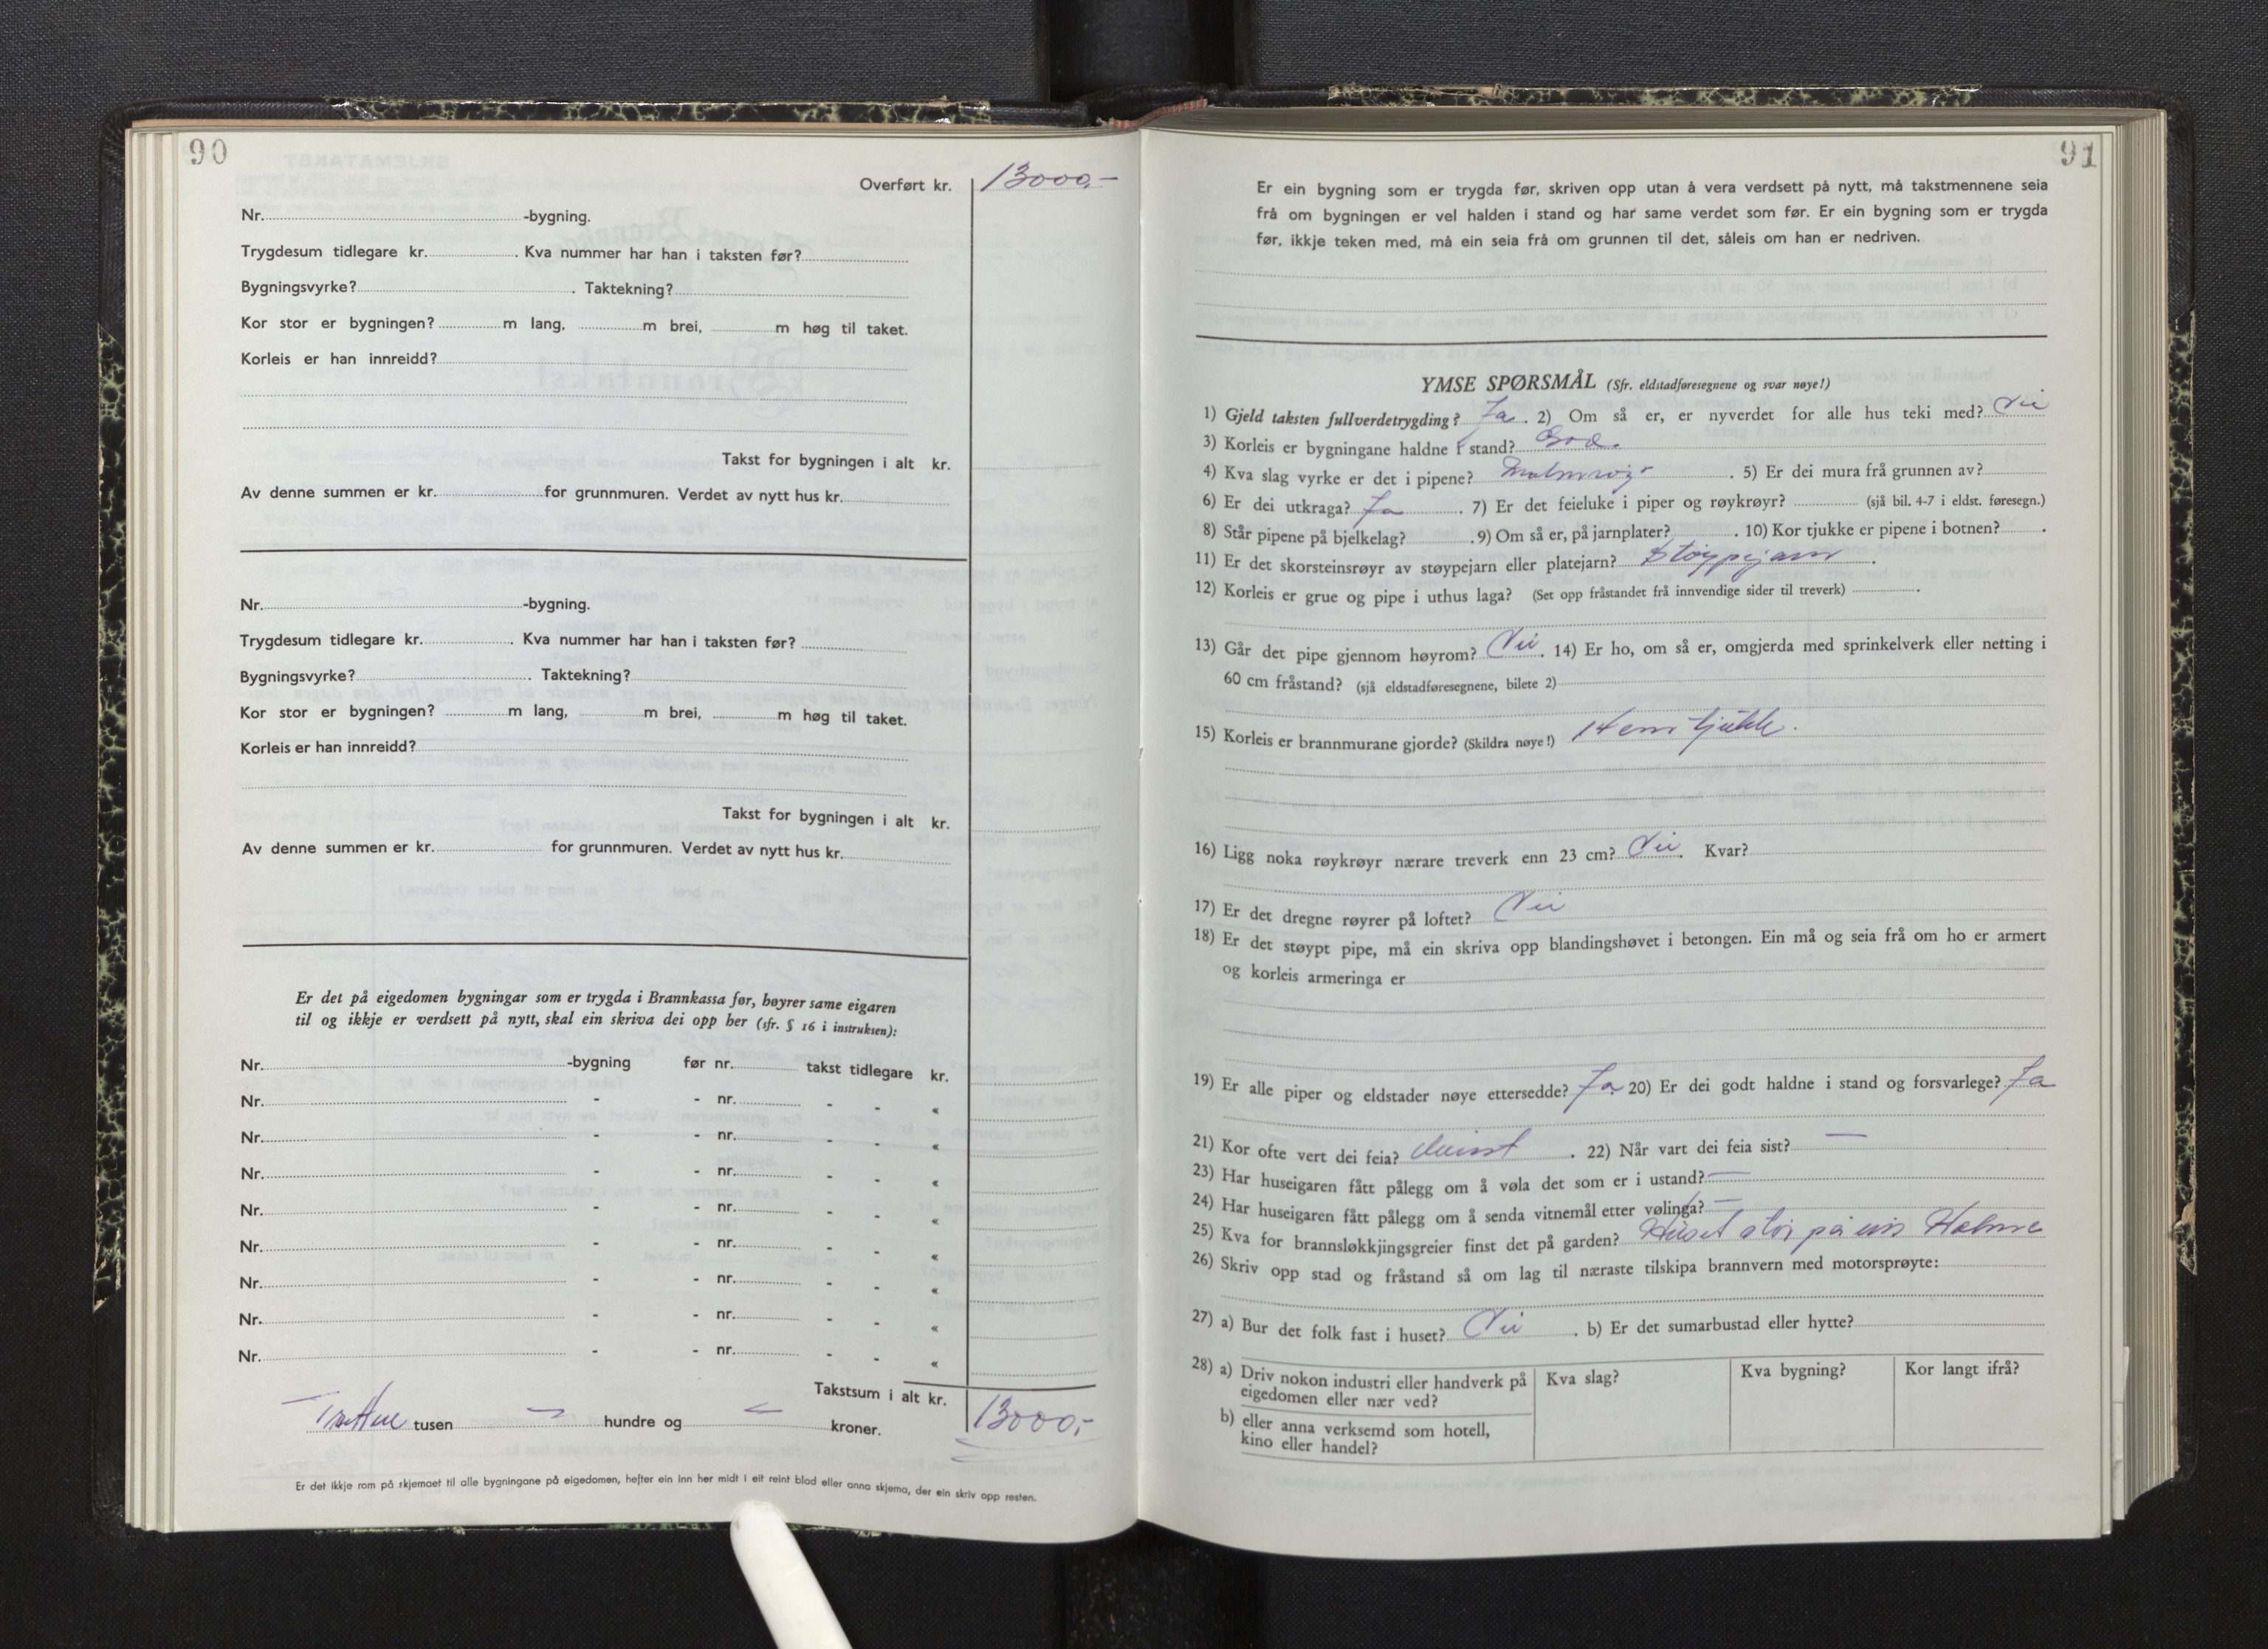 90
Overført kr. 13000,-
Nr. -bygning.
Trygdesum tidlegare kr. . Kva nummer har han i taksten før?
Bygningsvyrke? . Taktekning?
Kor stor er bygningen? m lang, m brei, m høg til taket.
Korleis er han innreidd?
Takst for bygningen i alt kr.
Av denne summen er kr. for grunnmuren. Verdet av nytt hus kr.
Nr. -bygning.
Trygdesum tidlegare kr. . Kva nummer har han i taksten før?
Bygningsvyrke? . Taktekning?
Kor stor er bygningen? m lang, m brei, m høg til taket.
Korleis er han innreidd?
Takst for bygningen i alt kr.
Av denne summen er kr. for grunnmuren. Verdet av nytt hus kr.
Er det på eigedomen bygningar som er trygda i Brannkassa før, høyrer same eigaren
til og ikkje er verdsett på nytt, skal ein skriva dei opp her (sfr. § 16 i instruksen):
Nr. -bygning før nr. takst tidlegare kr.
Nr. - - nr. - - «
Nr. - - nr. - - «
Nr. - - nr. - - «
Nr. - - nr. - - «
Nr. - - nr. - - «
Nr. - - nr. - - «
Nr. - - nr. - - «
Nr. - - nr. - - «
Takstsum i alt kr. 13000,-
Tretten tusen — hundre og — kroner.
Er det ikkje rom på skjemaet til alle bygningane på eigedomen, hefter ein inn her midt i eit reint blad eller anna skjema, der ein skriv opp resten.
91
Er ein bygning som er trygda før, skriven opp utan å vera verdsett på nytt, må takstmennene seia
frå om bygningen er vel halden i stand og har same verdet som før. Er ein bygning som er trygda
før, ikkje teken med, må ein seia frå om grunnen til det, såleis om han er nedriven.
YMSE SPØRSMÅL (Sfr. eldstadføresegnene og svar nøye!)
1) Gjeld taksten fullverdetrygding? Ja . 2) Om så er, er nyverdet for alle hus teki med? Nei
3) Korleis er bygningane haldne i stand? God.
4) Kva slag vyrke er det i pipene? . 5) Er dei mura frå grunnen av?
6) Er dei utkraga? Ja . 7) Er det feieluke i piper og røykrøyr? (sjå bil. 4-7 i eldst. føresegn.)
8) Står pipene på bjelkelag? . 9) Om så er, på jarnplater? . 10) Kor tjukke er pipene i botnen? .
11) Er det skorsteinsrøyr av støypejarn eller platejarn? Støypejarn .
12) Korleis er grue og pipe i uthus laga? (Set opp fråstandet frå innvendige sider til treverk) .
13) Går det pipe gjennom høyrom? Nei . 14) Er ho, om så er, omgjerda med sprinkelverk eller netting i
60 cm fråstand? (sjå eldstadføresegnene, bilete 2)
15) Korleis er brannmurane gjorde? (Skildra nøye!) 14 cm tjukke.
16) Ligg noka røykrøyr nærare treverk enn 23 cm? Nei . Kvar?
17) Er det dregne røyrer på loftet? Nei
18) Er det støypt pipe, må ein skriva opp blandingshøvet i betongen. Ein må og seia frå om ho er armert
og korleis armeringa er
19) Er alle piper og eldstader nøye ettersedde? Ja . 20) Er dei godt haldne i stand og forsvarlege? Ja
21) Kor ofte vert dei feia? . 22) Når vart dei feia sist? —
23) Har huseigaren fått pålegg om å vøla det som er i ustand? —
24) Har huseigaren fått pålegg om å senda vitnemål etter vølinga? —
25) Kva for brannsløkkjingsgreier finst det på garden? Huset står på ein Holme
26) Skriv opp stad og fråstand så om lag til næraste tilskipa brannvern med motorsprøyte:
27) a) Bur det folk fast i huset? Nei . b) Er det sumarbustad eller hytte?
28) a) Driv nokon industri eller handverk på
eigedomen eller nær ved?
Kva slag? Kva bygning? Kor langt ifrå?
b) eller anna verksemd som hotell,
kino eller handel?